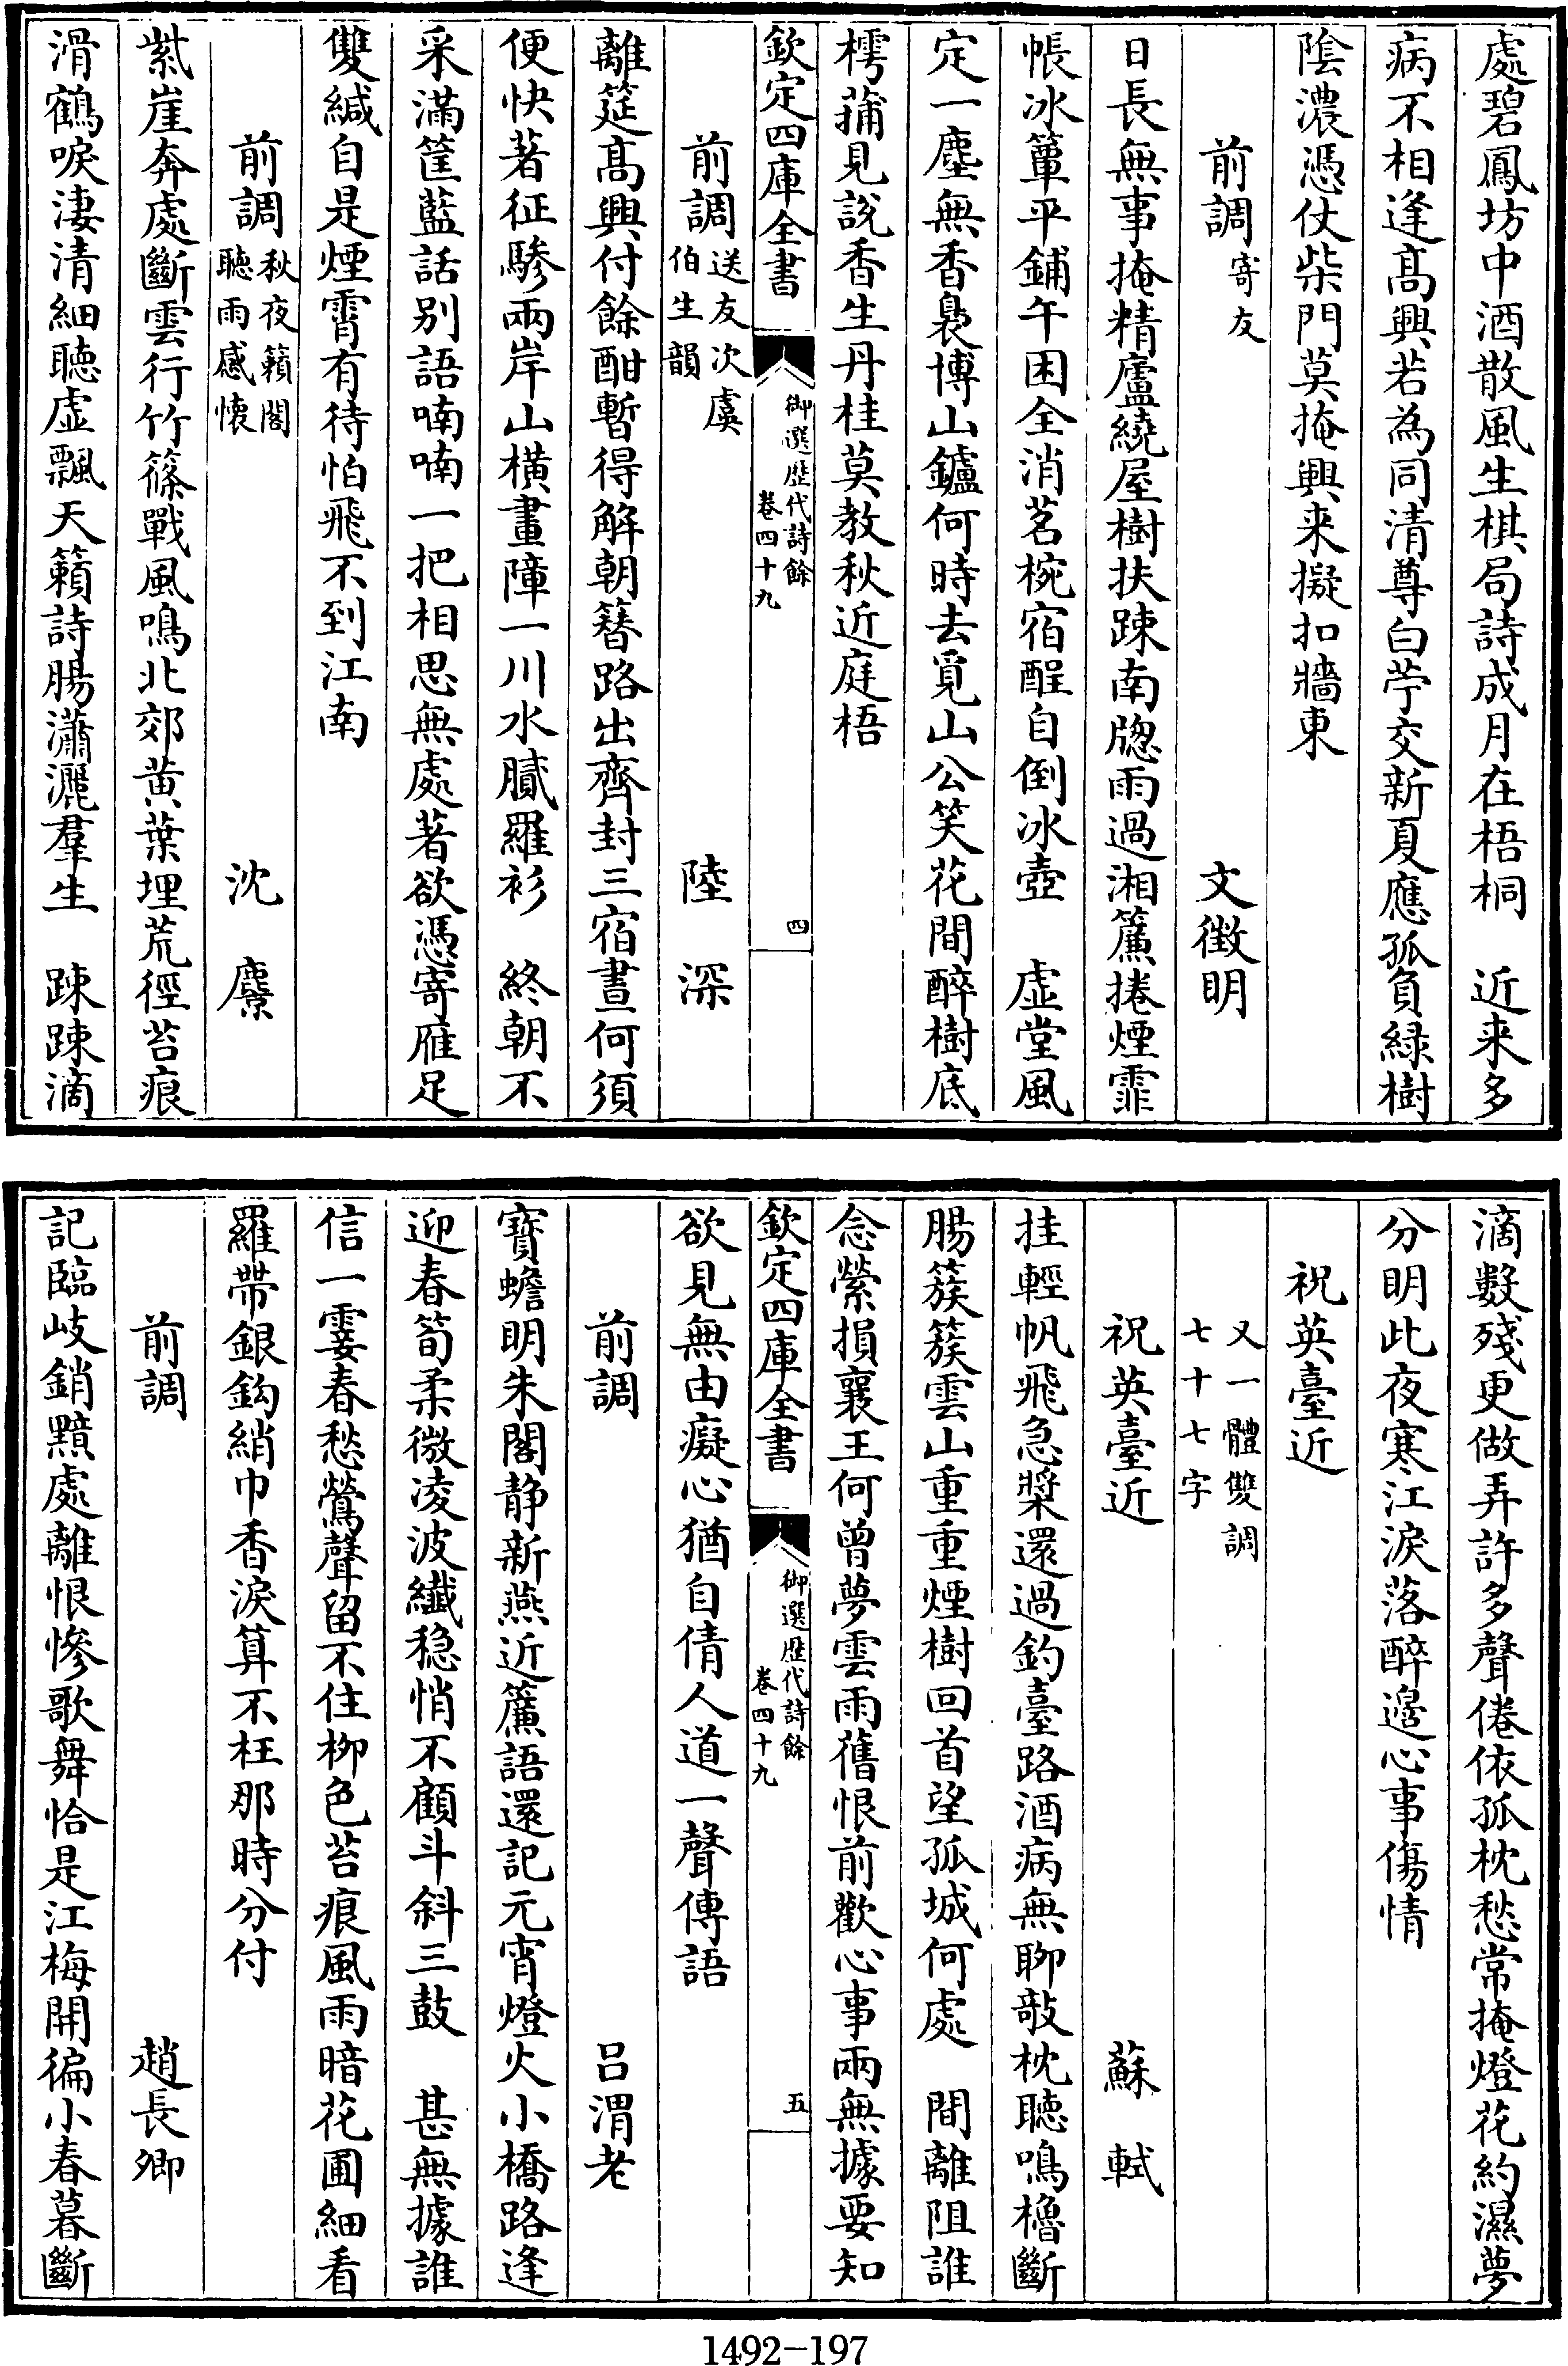 處碧鳳坊中酒散風生棋局詩成月在梧桐　近来多
病不相逢髙興若為同清尊白苧交新夏應孤負緑樹
陰濃憑仗柴門莫掩興来擬扣牆東
前調寄友　文徴明
日長無事掩精廬繞屋樹扶踈南牕雨過湘簾捲煙霏
帳冰簟平鋪午困全消茗椀宿酲自倒冰壺　虚堂風
定一塵無香裊博山鑪何時去覓山公笑花間醉樹底
樗蒲見說香生丹桂莫教秋近庭梧
欽定四庫全書　御選歴代詩餘卷四十九　四
前調送友次虞伯生韻　陸　深
離筵髙興付餘酣暫得解朝簪路出齊封三宿晝何須
便快著征驂兩岸山横畫障一川水膩羅衫　終朝不
采滿筐藍話别語喃喃一把相思無處著欲憑寄雁足
雙緘自是煙霄有待怕飛不到江南
前調秋夜籟閣聽雨感懐　沈　麖
紫崖奔處斷雲行竹篠戰風鳴北郊黄葉埋荒徑苔痕
滑鶴唳淒清細聽虚飄天籟詩腸瀟灑羣生　踈踈滴
滴數殘更做弄許多聲倦依孤枕愁常掩燈花約濕夢
分明此夜寒江淚落醉邉心事傷情
祝英臺近
又一體雙調七十七字
祝英臺近　蘇　軾
挂輕帆飛急槳還過釣臺路酒病無聊敧枕聽鳴櫓斷
腸簇簇雲山重重煙樹回首望孤城何處　間離阻誰
念縈損襄王何曾夢雲雨舊恨前歡心事兩無據要知
欽定四庫全書　御選歴代詩餘卷四十九　五
欲見無由癡心猶自倩人道一聲傳語
前調　吕渭老
寶蟾明朱閣静新燕近簾語還記元宵燈火小橋路逢
迎春筍柔微凌波纖穏悄不顧斗斜三鼓　甚無據誰
信一霎春愁鶯聲留不住栁色苔痕風雨暗花圃細看
羅帶銀鈎綃巾香淚算不枉那時分付
前調　趙長卿
記臨岐銷黯處離恨慘歌舞恰是江梅開徧小春暮斷
1492-197